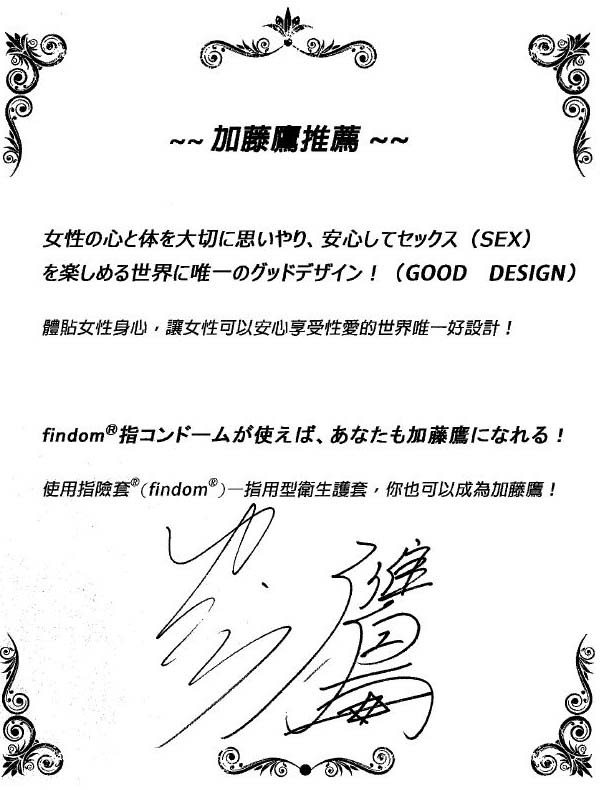 ~~ 加藤鷹推薦 ~~
女性の心と体を大切に思いやり、安心してセックス（SEX）
を楽しめる世界に唯一のグッドデザイン！（GOOD　DESIGN）
體貼女性身心，讓女性可以安心享受性愛的世界唯一好設計！
findom®指コンドームが使えば、あなたも加藤鷹になれる！
使用指險套®(findom®)—指用型衛生護套，你也可以成為加藤鷹！